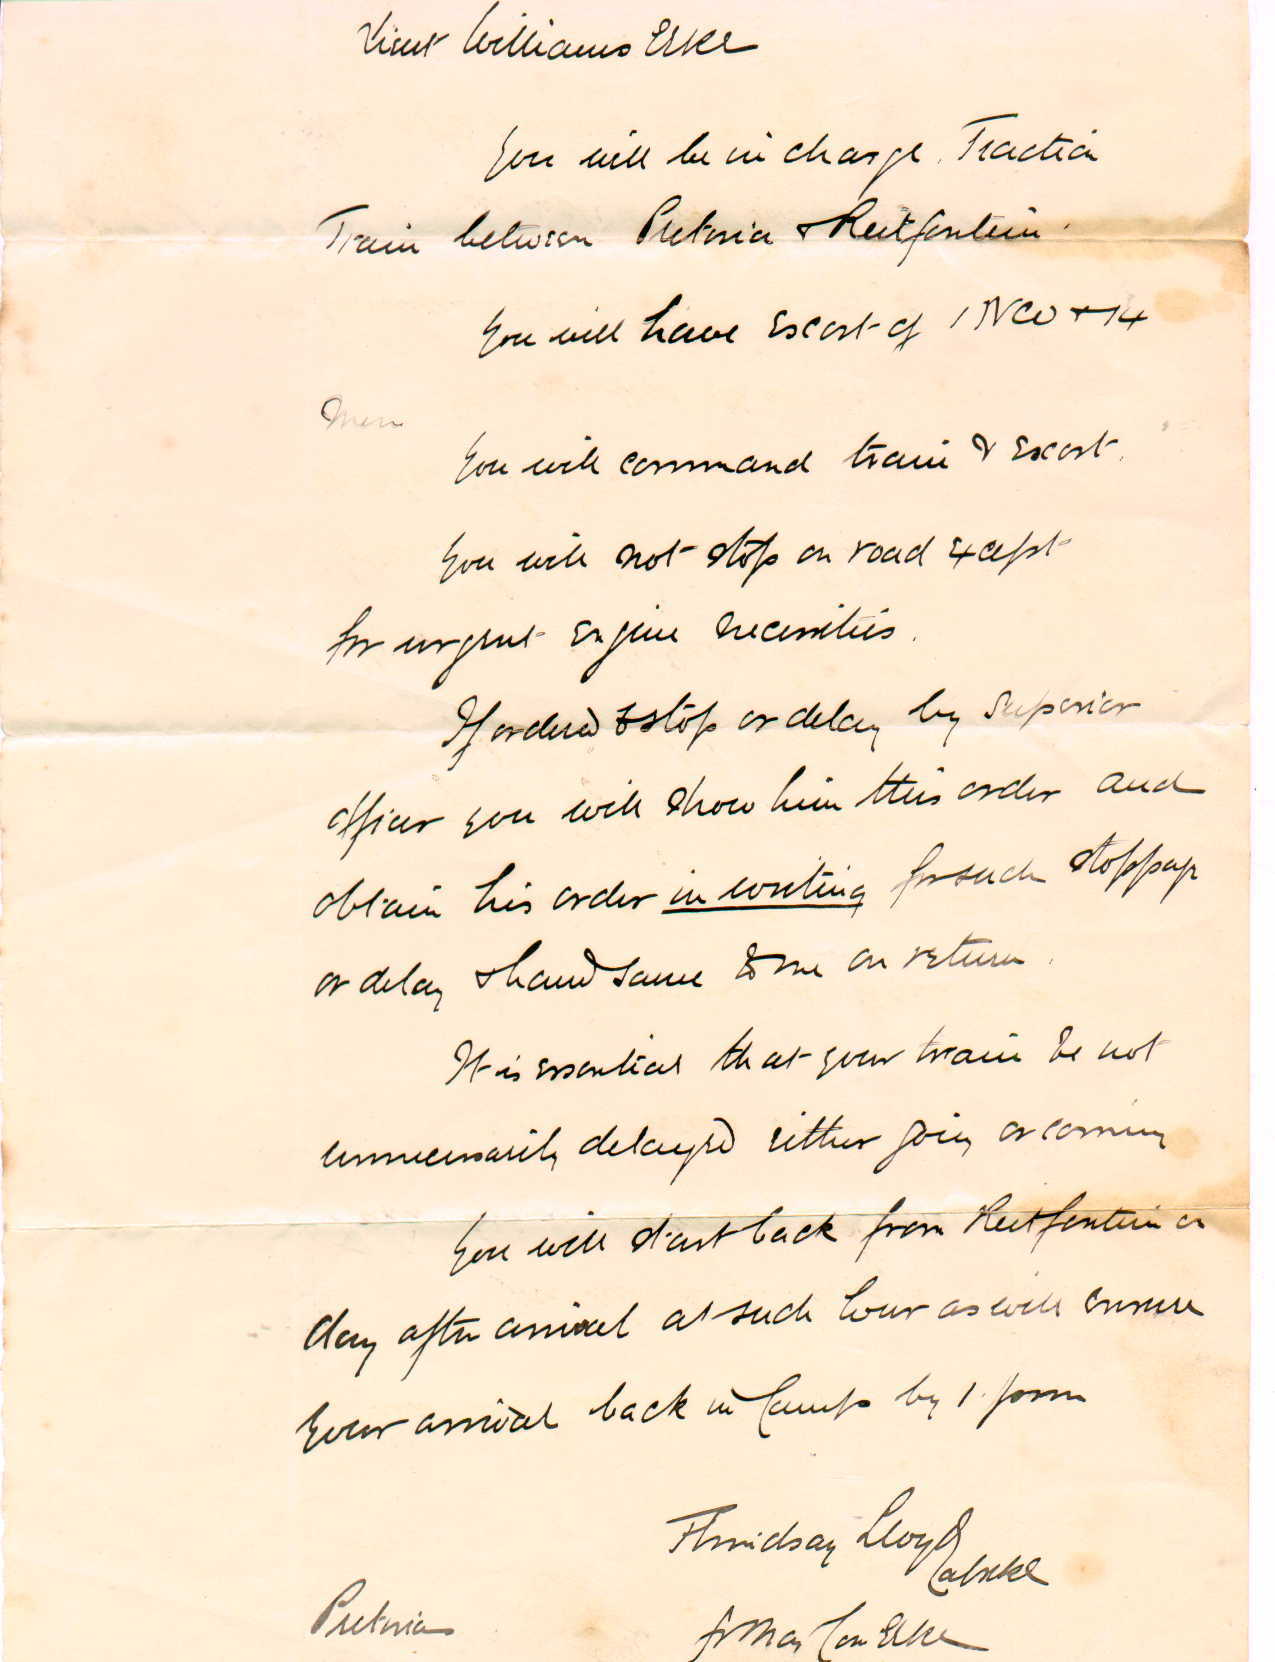 Lieut Williams ERE
You will be in charge. Traction
Train between Pretoria & Rietfontein.
You will have escort of 1 NCO & 14
Men
You will command train & escort.
You will not stop on road except
for urgent engine necessities.
If ordered to stop or delay by superior
officer you will show him this order and
obtain his order in writing for such stoppage
or delay & hand same to me on return.
It is essential that your train be not
unnecessarily delayed either going or coming
You will start back from Rietfontein on
day after arrival at such hour as will ensure
your arrival back in Camp by 1. pm
Lindsay Lloyd
Capt
Pretoria
for Maj Com